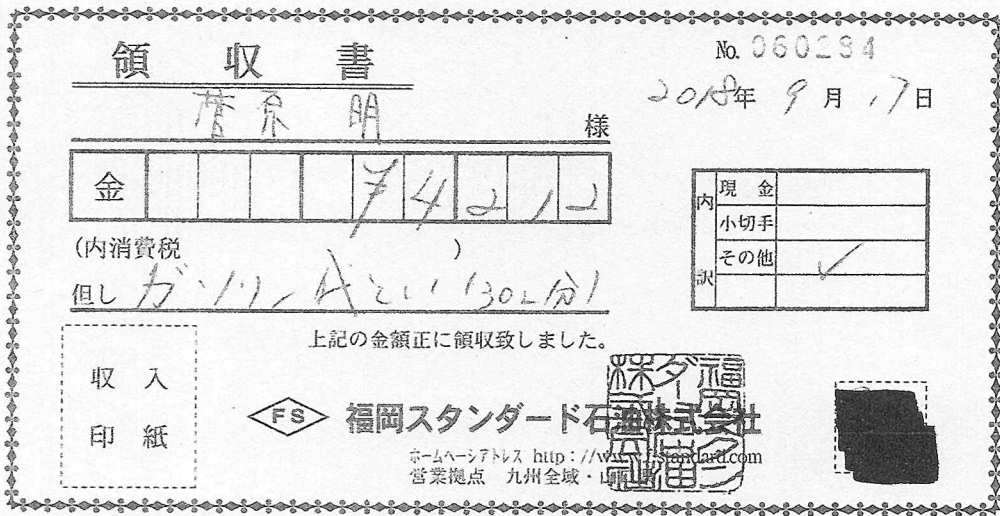 領収書
No. 060284
2018年 9月 17日
菅原 明 様
金 ¥4212
(内消費税 )
但し ガソリン代として(30L分)
内訳
現金
小切手
その他 ✓
上記の金額正に領収致しました。
収入
印紙
FS 福岡スタンダード石油株式会社
ホームページアドレス http://www.f-standard.com
営業拠点 九州全域・山口県